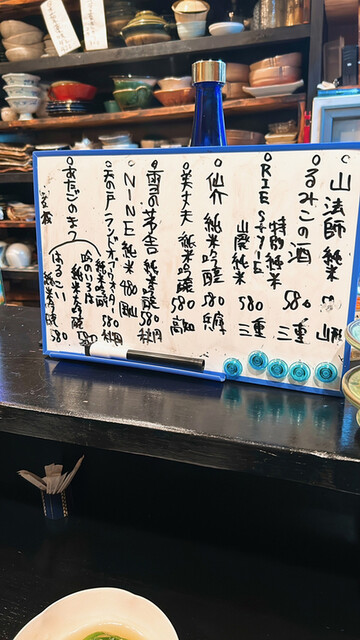 山法師 純米
るみこの酒 特別純米 580 三重
RIE STYLE 山廃純米 580 三重
仙介 純米吟醸 580 兵庫
美丈夫 純米吟醸 580 高知
雪の茅舎 純米吟醸 580 秋田
NINE 純米 480 岡山
天の戸 ランドオブウォーター 580 秋田
あたごのまつ
吟のいろは 純米大吟醸
はるこい 純米吟醸 580
宮城